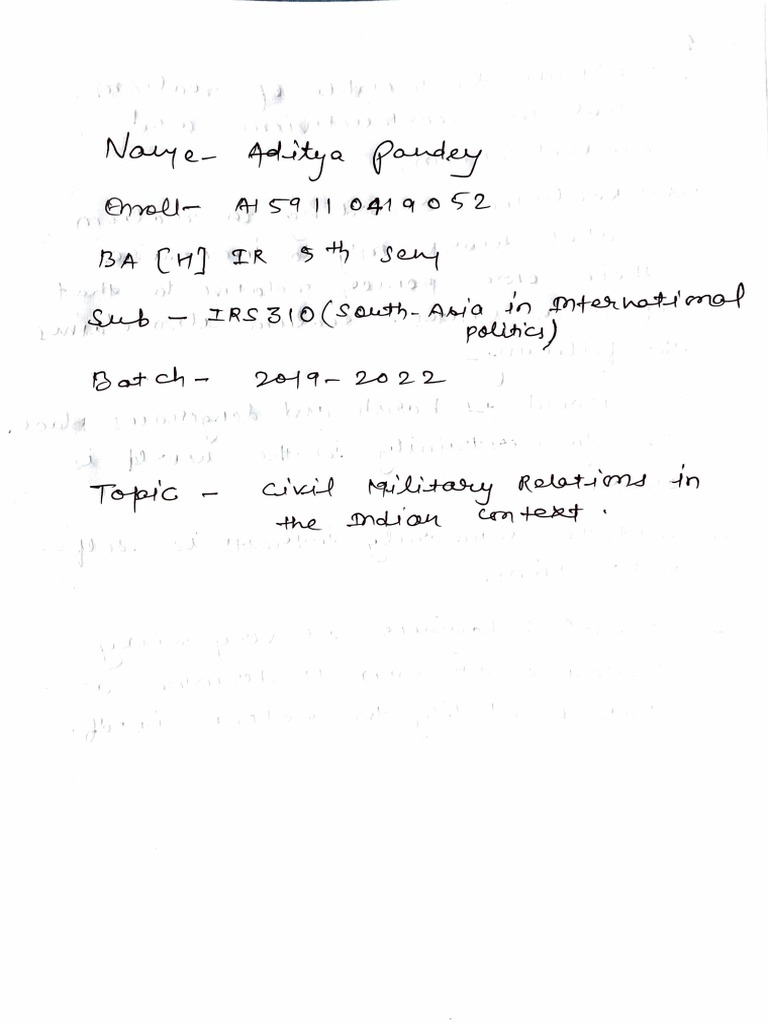 Name- Aditya Pandey
Enroll- A159110419052
BA [H] IR 5th Sem
Sub - IRS310 (South-Asia in International
politics)
Batch- 2019-2022
Topic - Civil Military Relations in
the Indian context.